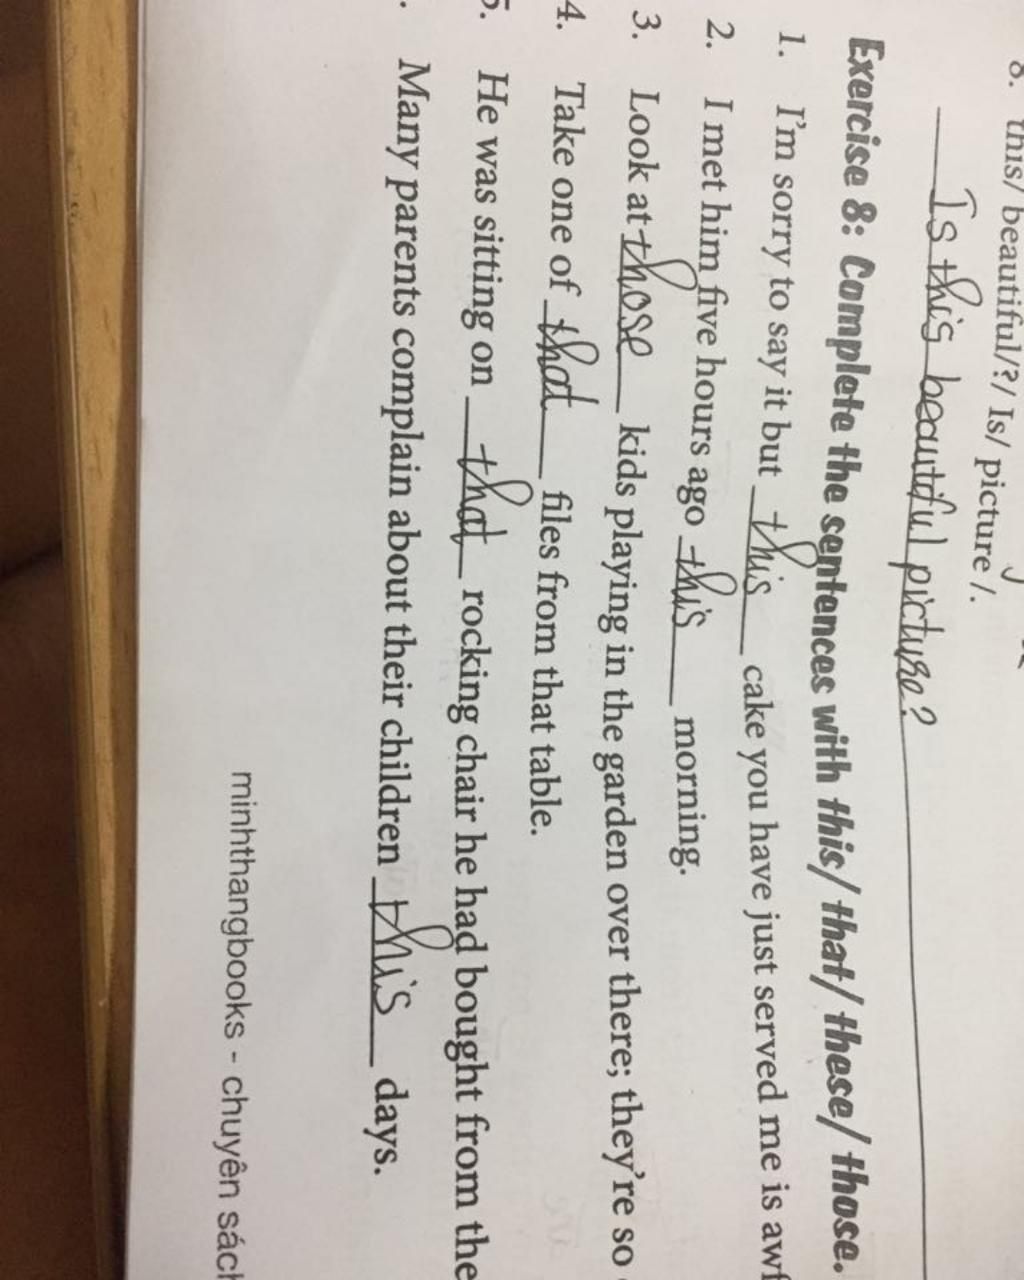 8. this/ beautiful/?/ Is/ picture /.
Is this beautiful picture?
Exercise 8: Complete the sentences with this/ that/ these/ those.
1. I'm sorry to say it but this cake you have just served me is
2. I met him five hours ago this morning.
3. Look at those kids playing in the garden over there; they're so
4. Take one of that files from that table.
5. He was sitting on that rocking chair he had bought from the
Many parents complain about their children this days.
minhthangbooks - chuyên sách